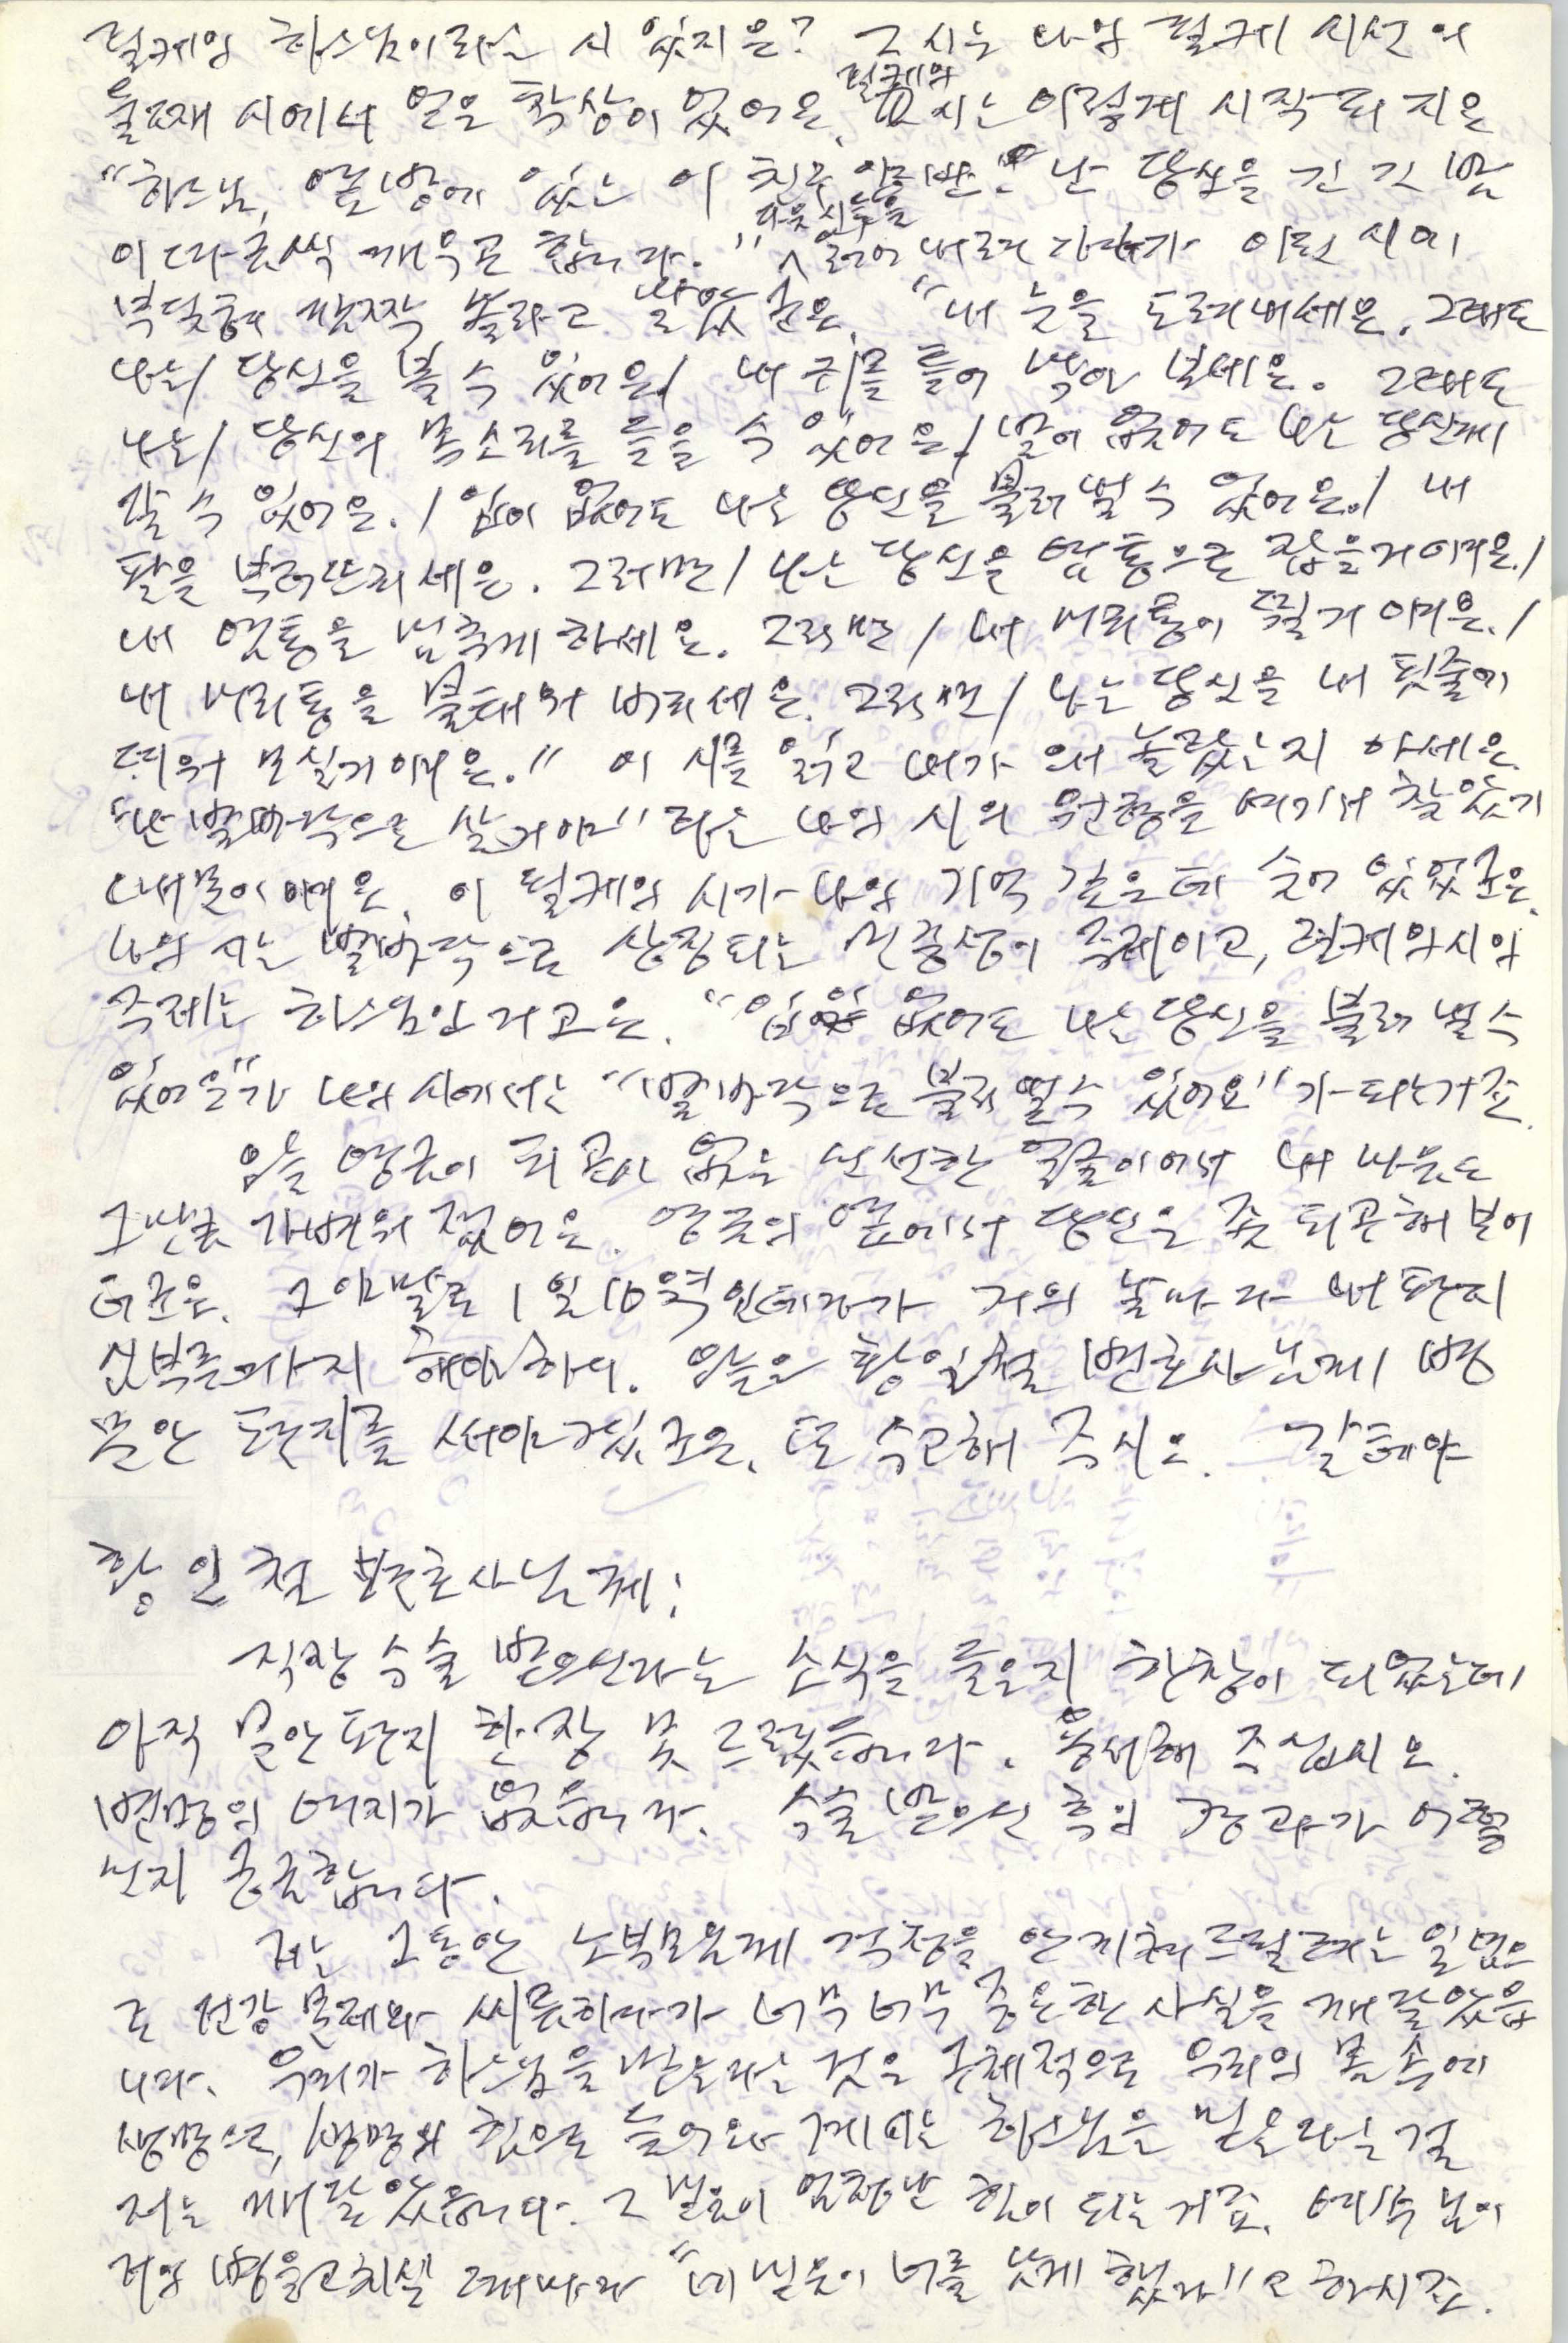 릴케의 하느님이라는 시 있지요? 그 시는 나의 릴케 시선의
둘째 시에서 얻은 착상이 있어요. 릴케의 시는 이렇게 시작되지요
"하느님, 옆방에 있는 이 난 당신을 긴 긴 밤
이따금씩 깨우곤 합니다." 다음 시들을 읽어 내려가다가 이런 시에
부딪혀 깜짝 놀라고 말았군요. "내 눈을 도려내세요. 그래도
나는/ 당신을 볼 수 있어요/ 내 귀를 틀어 막아 보세요. 그래도
나는/ 당신의 목소리를 들을 수 있어요./ 발이 없어도 나는 당신께
갈 수 있어요./ 입이 없어도 나는 당신을 불러낼 수 있어요./ 내
팔을 부러뜨리세요. 그러면/ 나는 당신을 염통으로 잡을거예요./
내 염통을 멈추게 하세요. 그러면/ 내 머리통이 뛸거예요./
내 머리통을 불태워 버리세요. 그러면/ 나는 당신을 내 핏줄에
띄워 모실거예요." 이 시를 읽고 내가 왜 놀랐는지 아세요.
"난 발바닥으로 살거야"라는 나의 시의 원형을 여기서 찾았기
때문이예요. 이 릴케의 시가 나의 기억 깊은데 숨어 있었군요.
나의 시는 발바닥으로 상징되는 민중성이 주제이고, 릴케의 시의
주제는 하느님인거고요. "입이 없어도 나는 당신을 불러낼 수
있어요"가 나의 시에서는 "발바닥으로 불러낼 수 있어요"가 되는거죠.
오늘 영금이 피곤이 없는 신선한 얼굴이어서 내 마음도
그만큼 가벼워졌어요. 영금의 옆에서 당신은 좀 피곤해 보이
더군요. 그야말로 1일 10역인데다가 거의 날마다 내 편지
심부름까지 해야하니. 오늘은 황인철 변호사님께 병
문안 편지를 써야겠군요. 또 수고해 주시오. 갈테야

황인철 변호사님께;
직장 수술 받으신다는 소식을 들은지 한참이 되었는데
아직 문안 편지 한 장 못 드렸습니다. 용서해 주십시오.
변명의 여지가 없습니다. 수술 받으신 후의 경과가 어떠하
신지 궁금합니다.
저는 그동안 노부모님께 걱정을 안 끼쳐 드릴려는 일념으
로 건강 문제와 씨름하다가 너무 너무 중요한 사실을 깨달았습
니다. 우리가 하느님을 믿는다는 것은 구체적으로 우리의 몸 속에
생명으로, 생명의 힘으로 들어와 계시는 하느님을 믿는다는 걸
저는 깨달았습니다. 그 믿음이 엄청난 힘이 되는거죠. 예수님이
병을 고치실 때마다 "네 믿음이 너를 낫게 했다"고 하시죠.